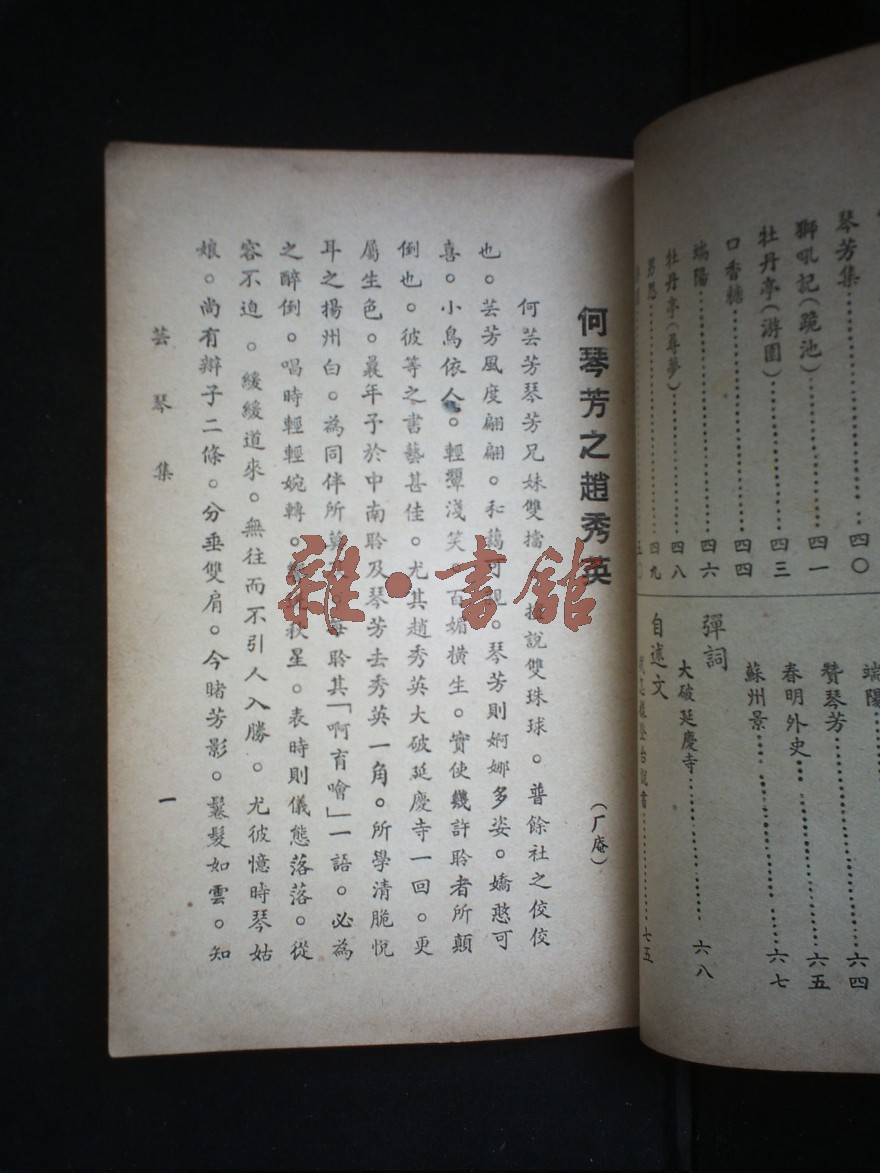 琴芳集⋯⋯⋯⋯四〇
獅吼記(跪池)⋯⋯⋯⋯四一
牡丹亭(游園)⋯⋯⋯⋯四三
口香糖⋯⋯⋯⋯四四
端陽⋯⋯⋯⋯四六
牡丹亭(尋夢)⋯⋯⋯⋯四八
⋯⋯⋯⋯四九
端陽⋯⋯⋯⋯六四
贊琴芳⋯⋯⋯⋯六五
春明外史⋯⋯⋯⋯六七
蘇州景⋯⋯⋯⋯
彈詞
大破延慶寺⋯⋯⋯⋯六八
自述文
登台說書⋯⋯⋯⋯七五
何琴芳之趙秀英
(厂庵)
何芸芳琴芳兄妹雙擋。擅說雙珠球。普餘社之佼佼
也。芸芳風度翩翩。和藹可親。琴芳則婀娜多姿。嬌憨可
喜。小鳥依人。輕顰淺笑。百媚橫生。實使幾許聆者所顛
倒也。彼等之書藝甚佳。尤其趙秀英大破延慶寺一回。更
屬生色。曩年予於中南聆及琴芳去秀英一角。所學清脆悅
耳之揚州白。為同伴所莫及。每聆其「啊育噲」一語。必為
之醉倒。唱時輕輕婉轉。秋星。表時則儀態落落。從
容不迫。緩緩道來。無往而不引人入勝。尤彼憶時琴姑
娘。尚有辮子二條。分垂雙肩。今睹芳影。鬈髮如雲。知
芸琴集
一
雜·書館